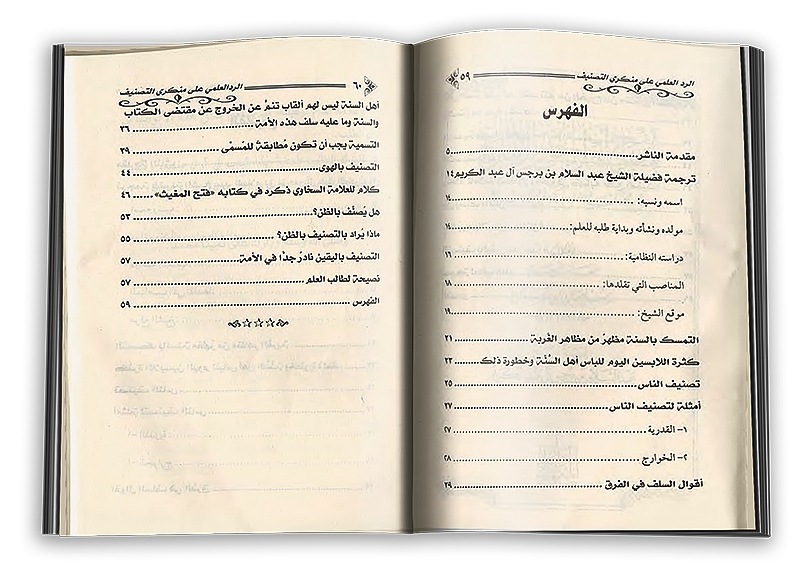 الرد العلمي على منكري التصنيف ٥٩
الفهرس
مقدمة الناشر ٥
ترجمة فضيلة الشيخ عبد السلام بن برجس آل عبد الكريم ١٤
اسمه ونسبه: ١٤
مولده ونشأته وبداية طلبه للعلم: ١٤
دراسته النظامية: ١٦
المناصب التي تقلدها: ١٨
موقع الشيخ: ١٩
التمسك بالسنة مظهرٌ من مظاهر الغربة ٢١
كثرة اللابسين اليوم للباس أهل السُّنَّة وخطورة ذلك ٢٣
تصنيف الناس ٢٥
أمثلة لتصنيف الناس ٢٧
١- القدرية ٢٧
٢- الخوارج ٢٨
أقوال السلف في الفرق ٢٩
٦٠ الرد العلمي على منكري التصنيف
أهل السنة ليس لهم ألقاب تنمُّ عن الخروج عن مقتضى الكتاب
والسنة وما عليه سلف هذه الأمة ٣٦
التسمية يجب أن تكون مُطابقةً للمُسمَّى ٣٩
التصنيف بالهوى ٤٤
كلام للعلامة السخاوي ذكره في كتابه «فتح المغيث» ٤٦
هل يُصنَّف بالظن؟ ٥٣
ماذا يُراد بالتصنيف بالظن؟ ٥٥
التصنيف باليقين نادرٌ جدًّا في الأمة ٥٧
نصيحة لطالب العلم ٥٧
الفهرس ٥٩